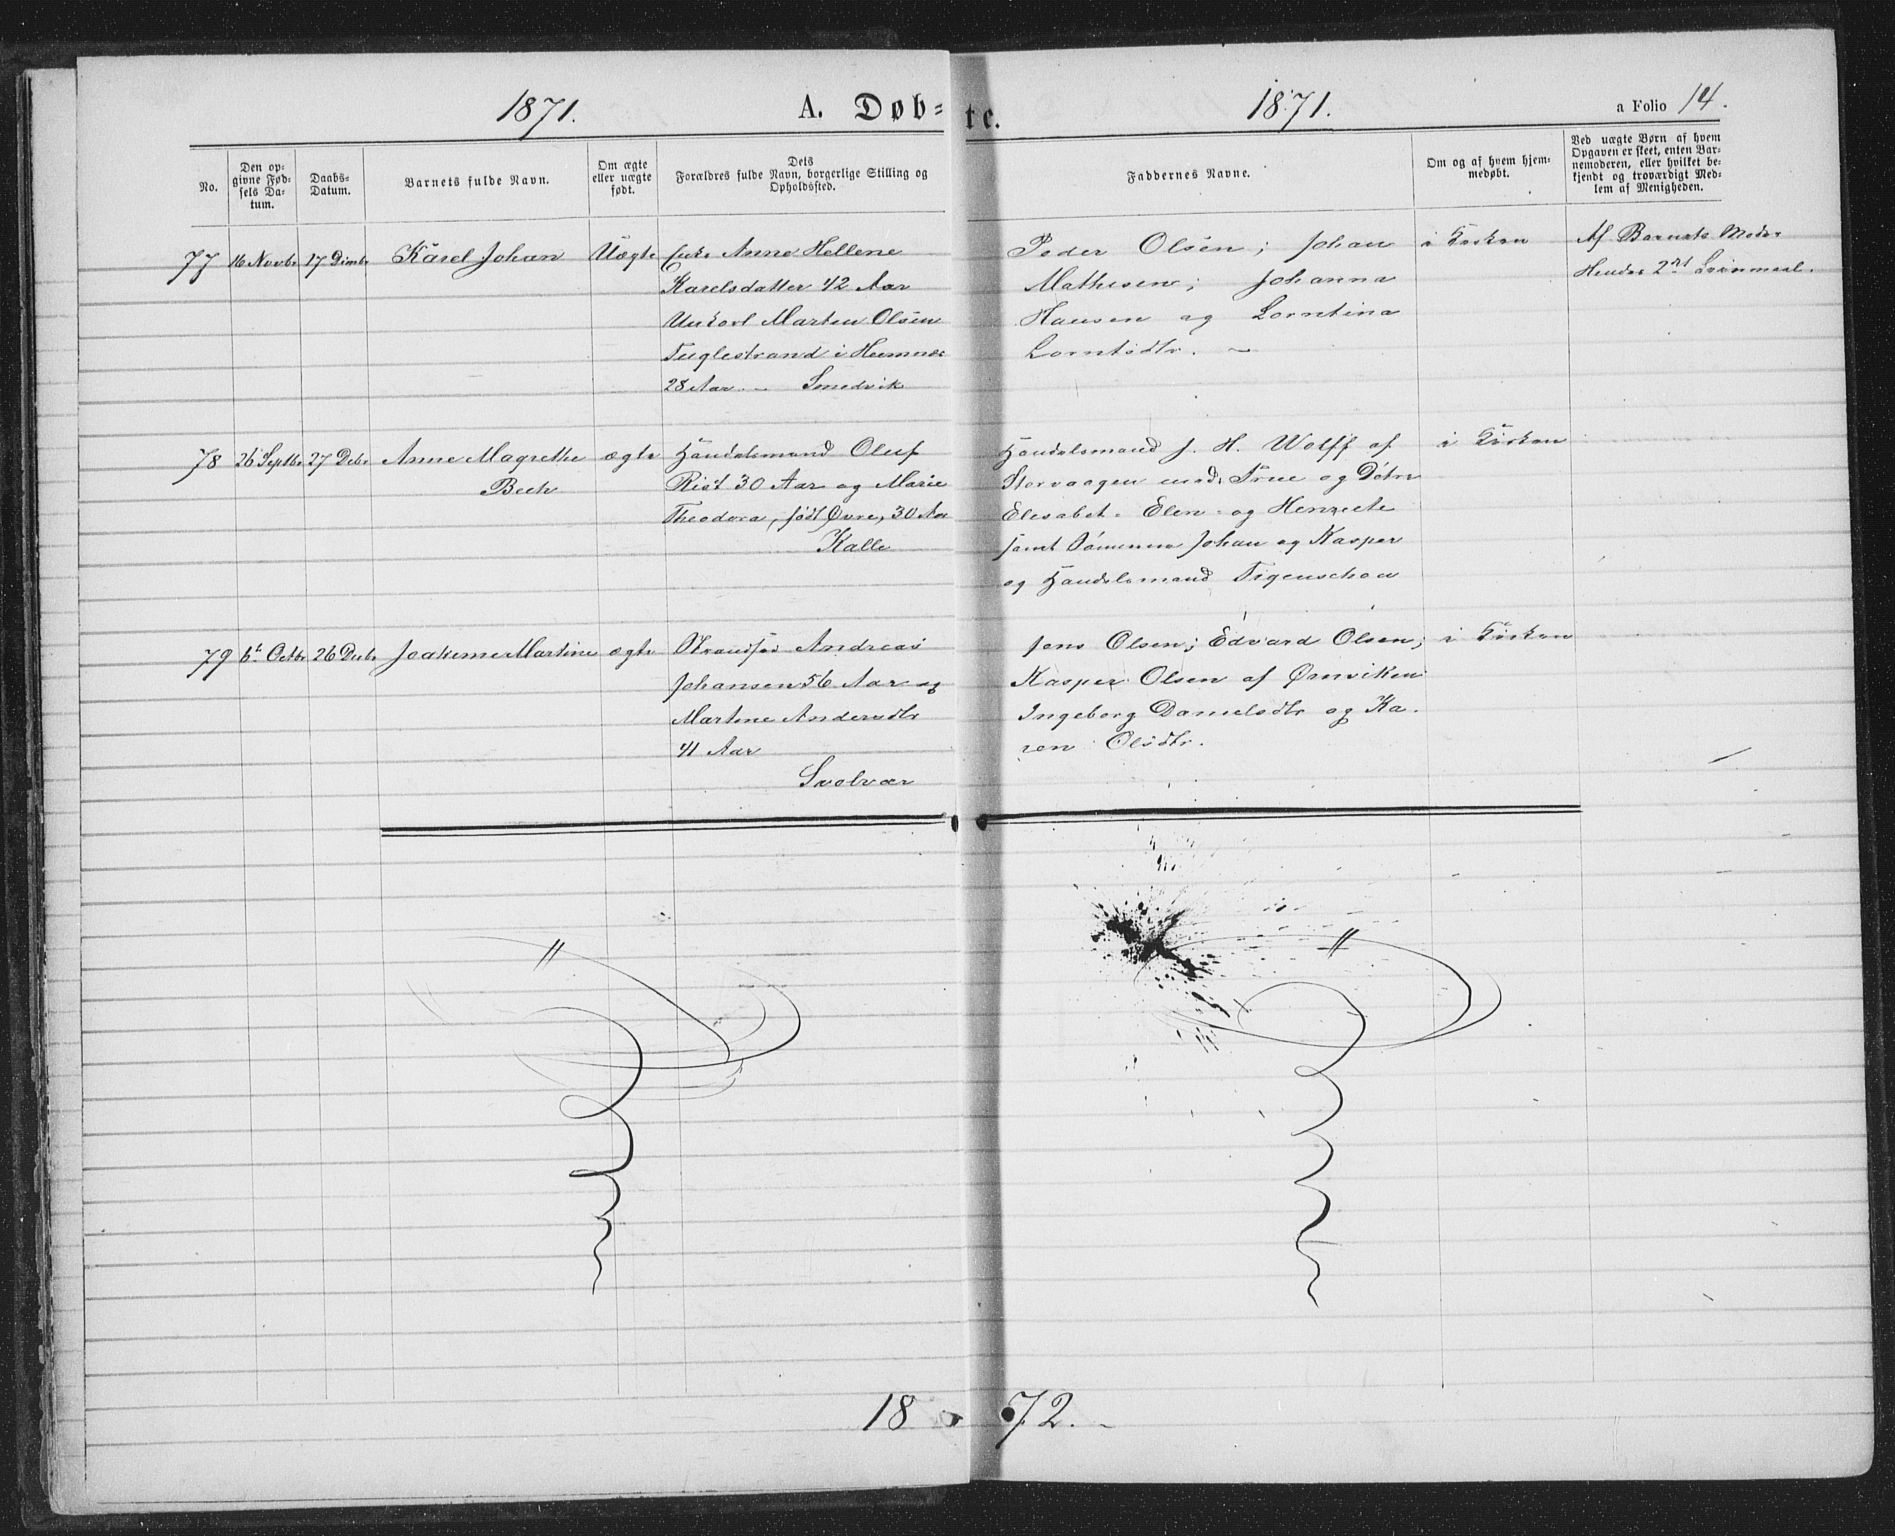 1871. A. Døb= te. 1871. a Folio 14.
No.
Den op=
givne Fød=
sels Da=
tum.
Daabs=
Datum.
Barnets fulde Navn.
Om ægte
eller uægte
født.
Dets
Forældres fulde Navn, borgerlige Stilling og
Opholdssted.
Faddernes Navne.
Om og af hvem hjem=
medøbt.
Ved uægte Børn af hvem
Opgaven er skeet, enten Bar=
nemoderen, eller hvilket be=
kjendt og troværdigt Med=
lem af Menigheden.
77 16 Novbr 17 Dcmbr Karel Johan Uægte Enke Anne Hellene
Karelsdatter 42 Aar
Unkarl Marten Olsen
Fuglestrand i Hemnes
28 Aar. – Smedvik
Peder Olsen; Johan
Mathisen; Johanna
Hansen og Lorntina
Lorntsdtr. –
i Kirken
Af Barnets Moder
Hendes 2det Leiermaal.
78 26 Septbr 27 Debr Anne Magrethe ægte Handelsmand Oluf
Bech Rist 30 Aar og Marie
Theodora, født Øvre, 30 Aar
Kalle
Handelsmand J. H. Wolff af
Storvaagen med Frue og Døtre
Elesabet. Elen og Henreete
samt Sønnerne Johan og Kasper
og Handelsmand Figenschou
i Kirken
79 6te Octbr 26 Decbr Joakime Martine ægte Strandsid Andreas
Johansen 56 Aar og
Martine Andersdtr
41 Aar
Svolvær
Jens Olsen; Edvard Olsen;
Kasper Olsen af Ørsviken
Ingeborg Danielsdtr og Ka.
ren Olsdtr.
i Kirken
18 72. –